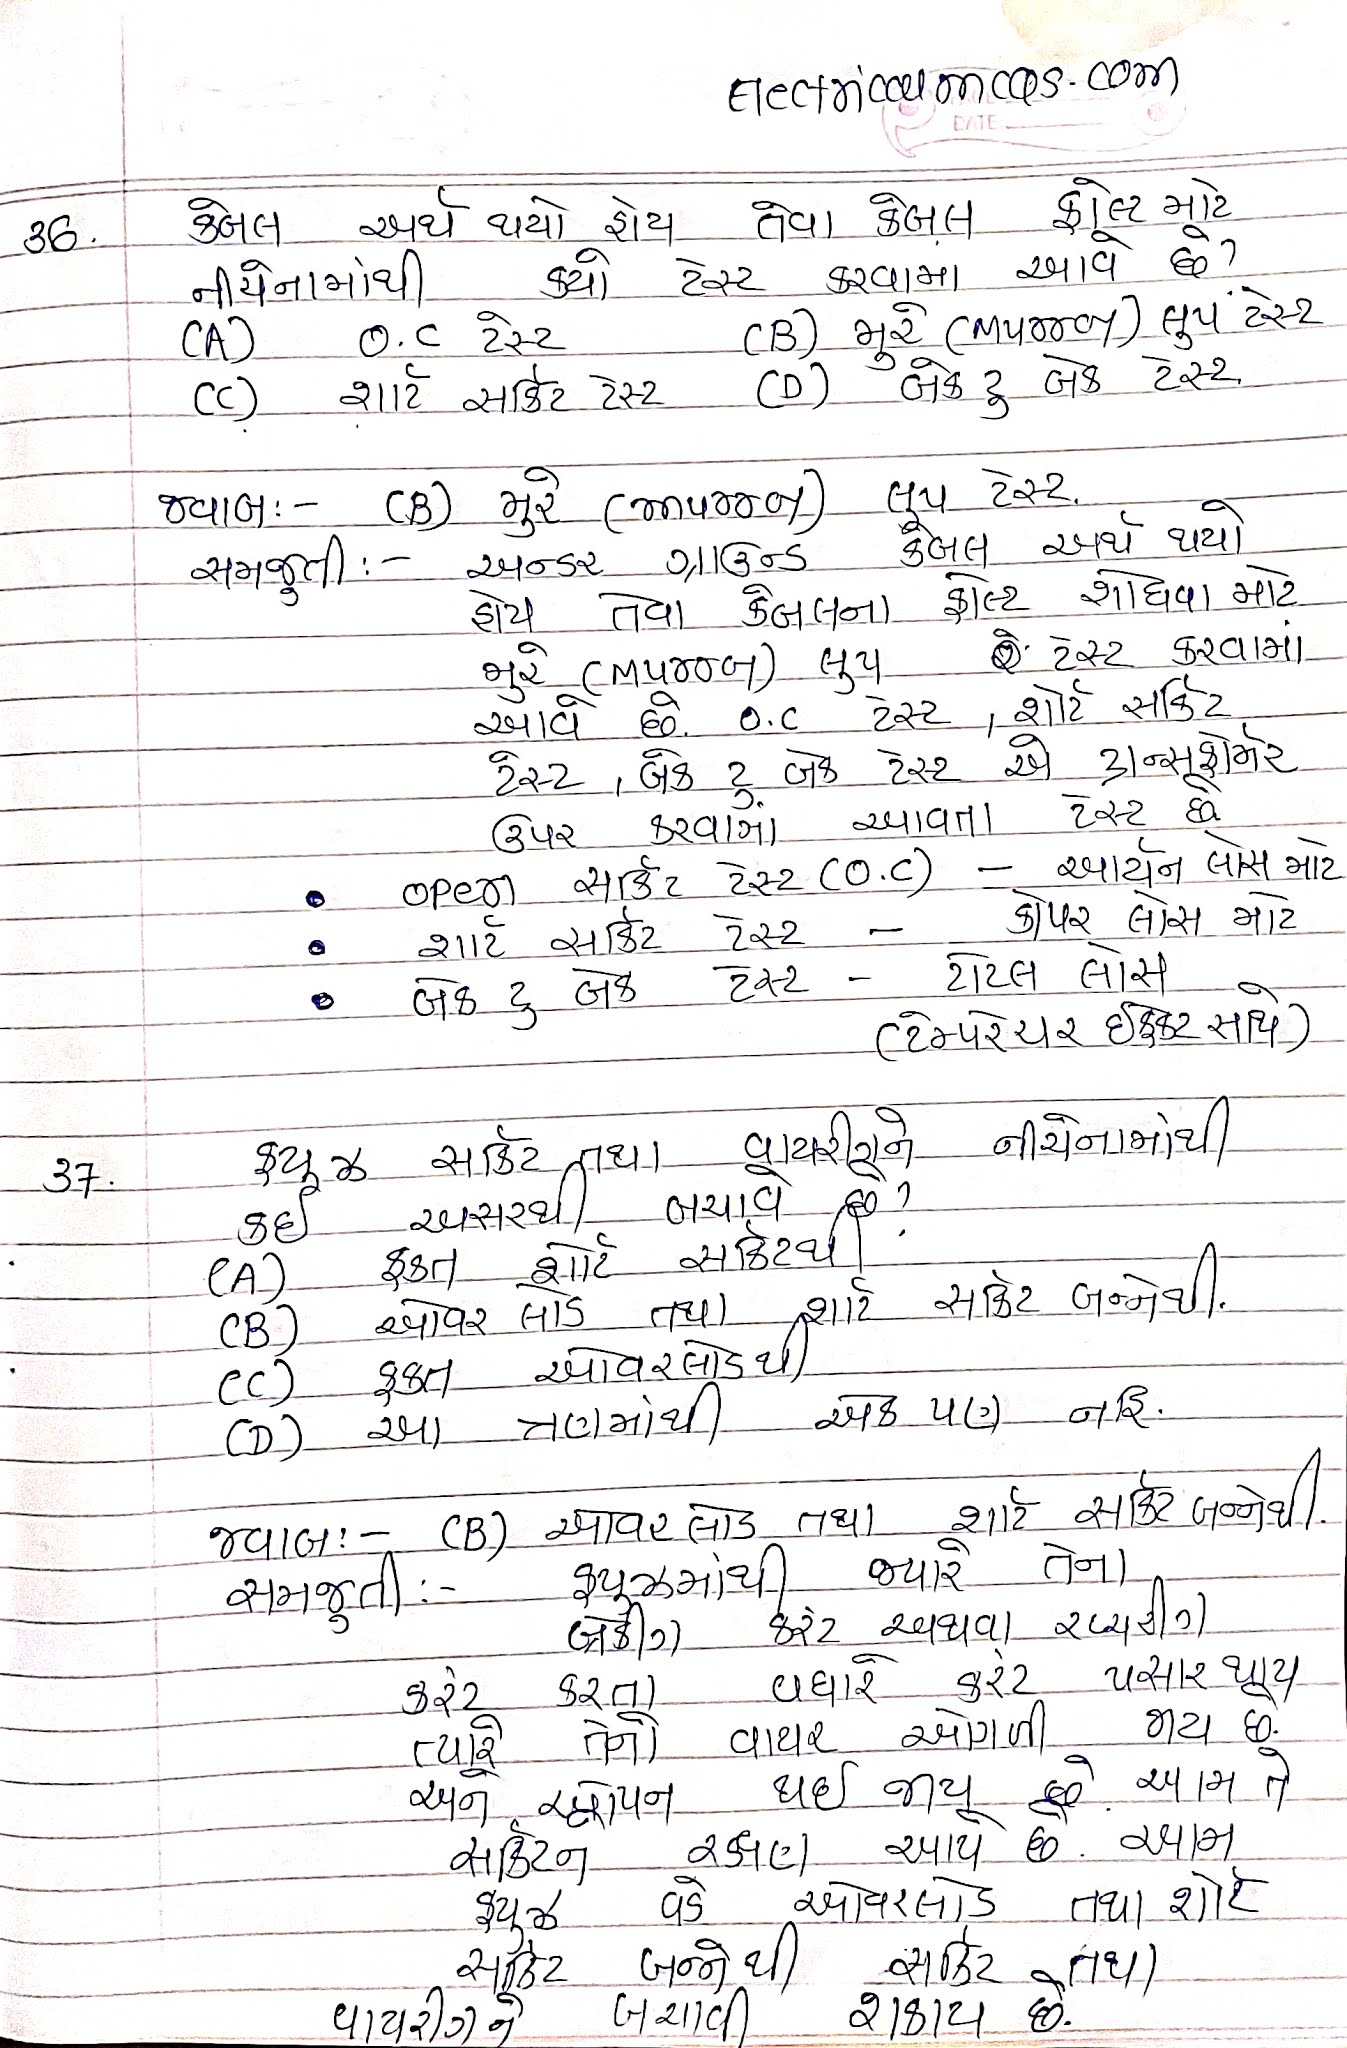 electricalmcqs.com
DATE
36. કેબલ અર્થ થયો હોય તેવા કેબલ ફોલ્ટ માટે
નીચેનામાંથી કયો ટેસ્ટ કરવામા આવે છે?
(A) O.C ટેસ્ટ (B) મુરે (મ્પજ્જબ) લુપ ટેસ્ટ
(C) શાર્ટ સર્કિટ ટેસ્ટ (D) બેક ટુ બેક ટેસ્ટ.
જવાબઃ- (B) મુરે લુપ ટેસ્ટ.
સમજુતીઃ- અન્ડર ગ્રાઉન્ડ કેબલ અર્થ થયો
હોય તેવા કેબલના ફોલ્ટ શોધવા માટે
મુરે લુપ ટેસ્ટ કરવામાં
આવે છે. O.C ટેસ્ટ, શોર્ટ સર્કિટ
ટેસ્ટ, બેક ટુ બેક ટેસ્ટ એ ટ્રાન્સફોર્મર
ઉપર કરવામાં આવતા ટેસ્ટ છે
• open સર્કિટ ટેસ્ટ (O.C) - આર્યન લોસ માટે
• શાર્ટ સર્કિટ ટેસ્ટ - કોપર લોસ માટે
• બેક ટુ બેક ટેસ્ટ - ટોટલ લોસ
(ટેમ્પરેચર ઈફેક્ટ સાથે)
37. ફ્યૂઝ સર્કિટ તથા વાયરીગને નીચેનામાંથી
કઈ અસરથી બચાવે છે?
(A) ફક્ત શોર્ટ સર્કિટથી
(B) ઓવર લોડ તથા શાર્ટ સર્કિટ બન્નેથી.
(C) ફક્ત ઓવરલોડથી
(D) આ ત્રણમાંથી એક પણ નહિ.
જવાબઃ- (B) ઓવર લોડ તથા શાર્ટ સર્કિટ બન્નેથી.
સમજુતીઃ- ફ્યૂઝમાંથી જ્યારે તેના
કરંટ અથવા
કરંટ કરતા વધારે કરંટ પસાર થાય
ત્યારે તેનો વાયર ઓગળી જાય છે.
અને ઓપન થઈ જાય છે. આમ તે
સર્કિટને રક્ષણ આપે છે. આમ
ફ્યૂઝ વડે ઓવરલોડ તથા શોર્ટ
સર્કિટ બન્નેથી સર્કિટ તથા
વાયરીગને બચાવી શકાય છે.